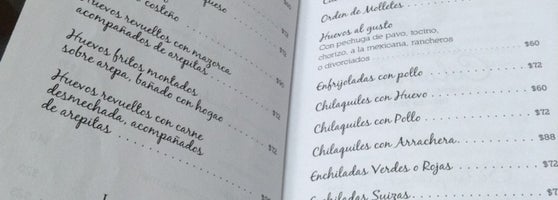 queso
costeño
Huevos revueltos con mazorca
acompañados de arepitas
Huevos fritos montados
sobre arepa, bañado con hogao
$72
Huevos revueltos con carne
desmechada, acompañados
$72
de arepitas
Orden de Molletes
Huevos al gusto
Con pechuga de pavo, tocino,
chorizo, a la mexicana, rancheros
o divorciados $60
Enfrijoladas con pollo $72
Chilaquiles con Huevo $60
Chilaquiles con Pollo $72
Chilaquiles con Arrachera $88
Enchiladas Verdes o Rojas $72
Enchiladas Suizas